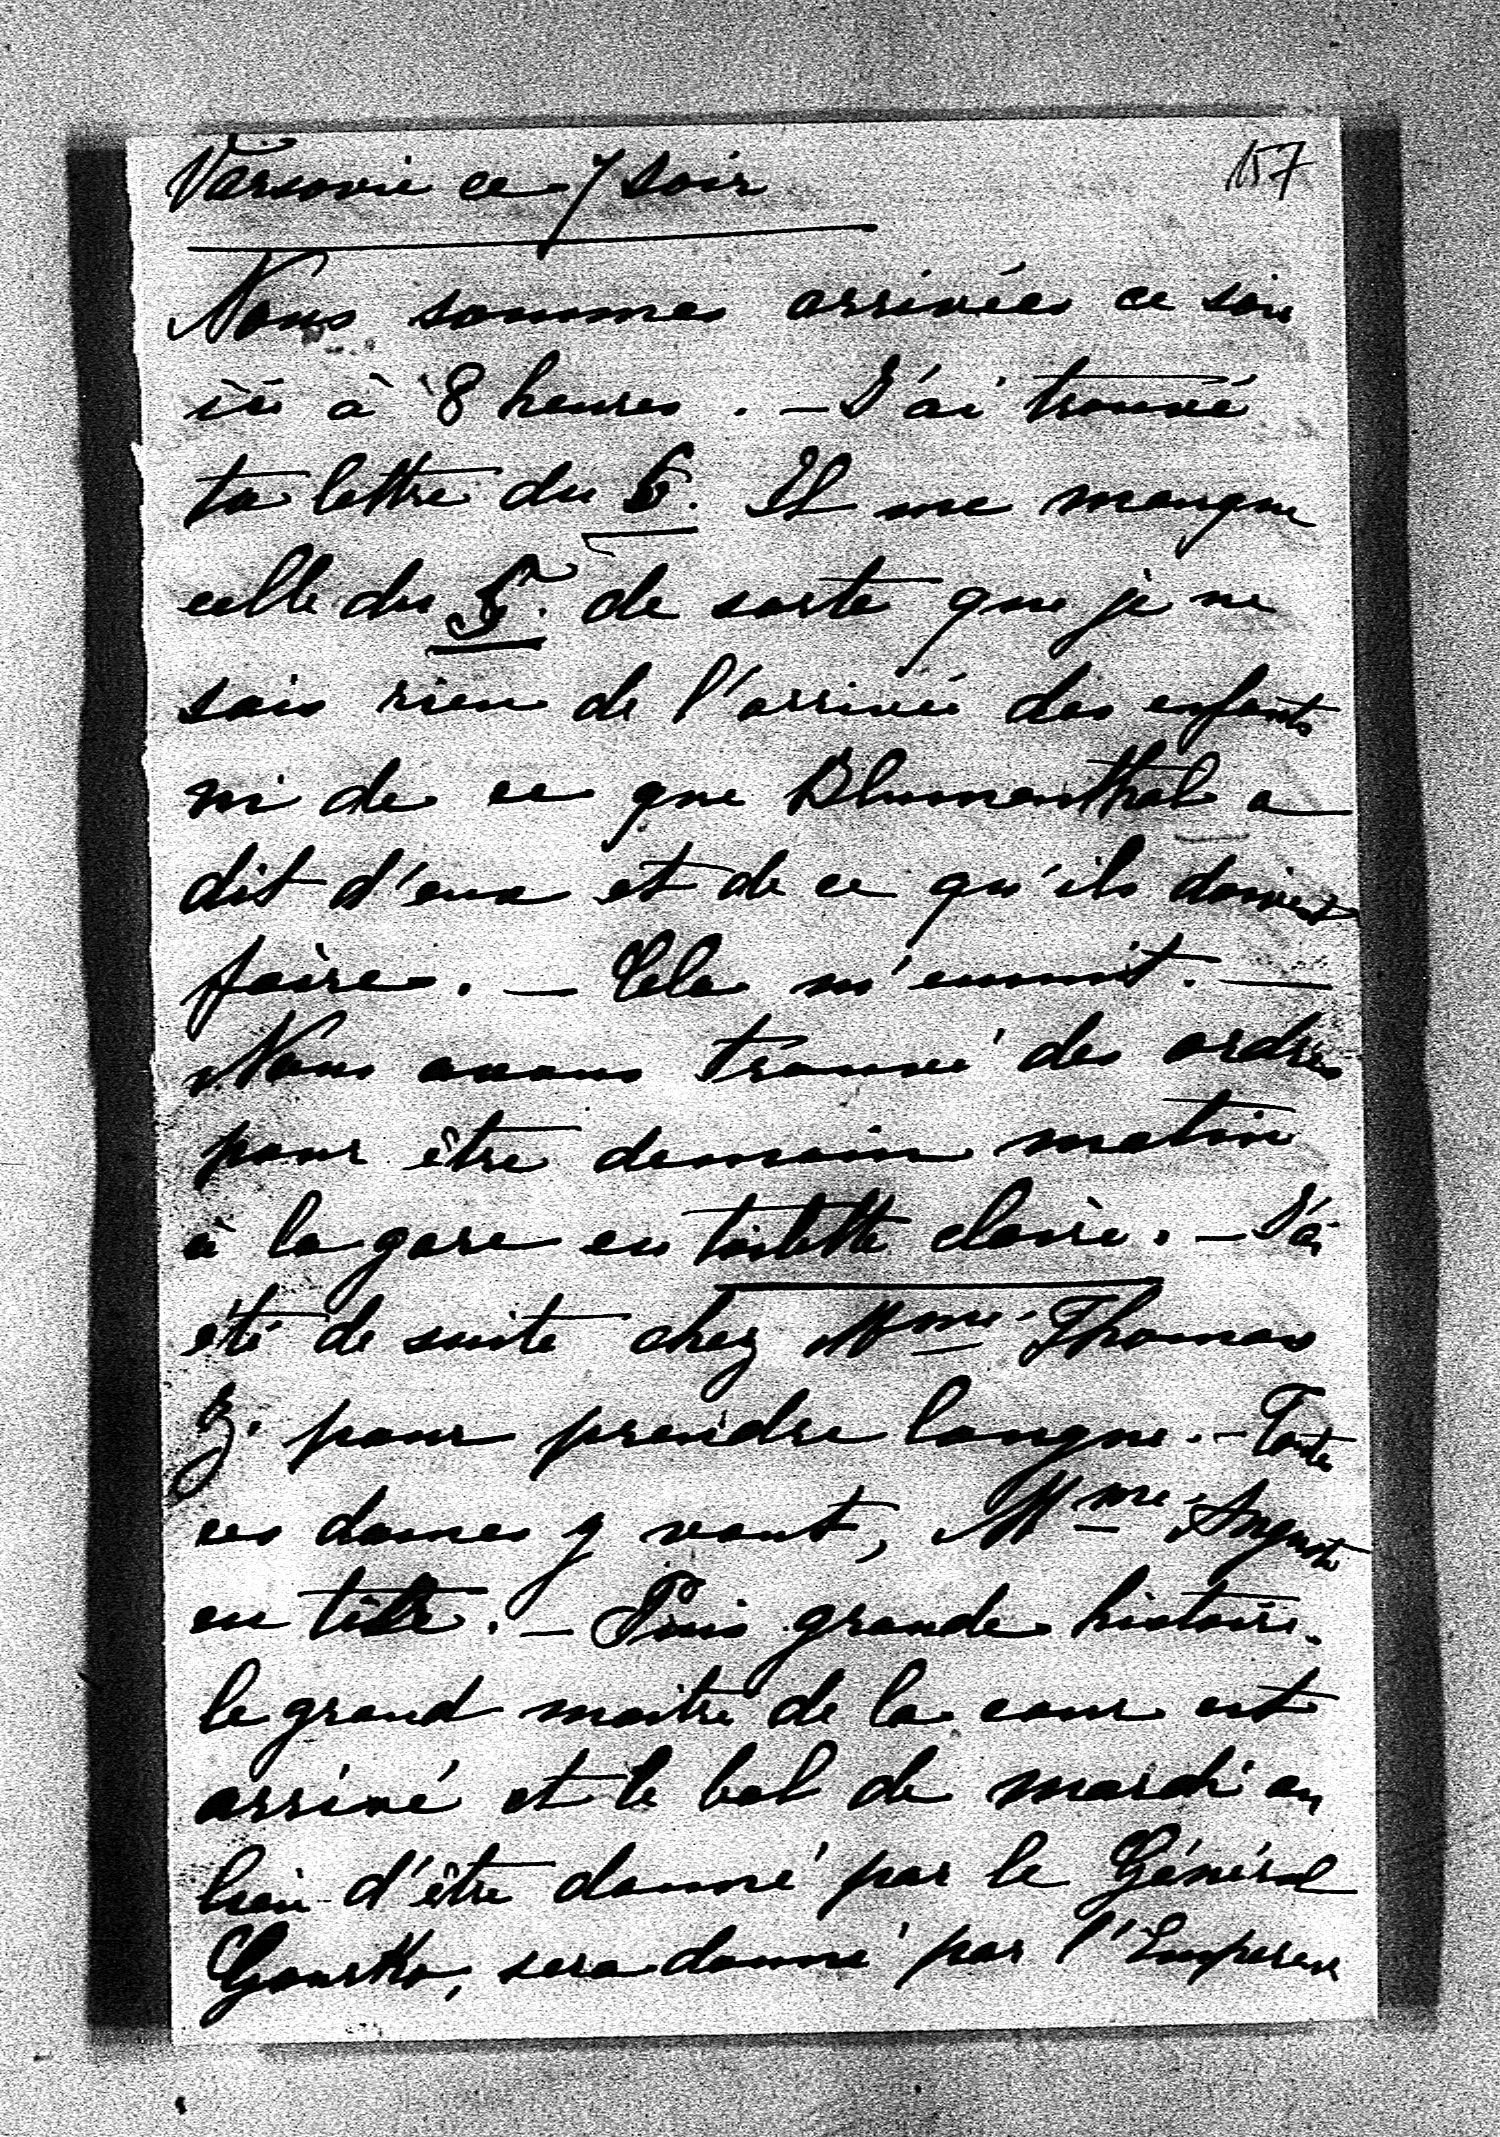 157
Varsovie ce 7 soir
Nous sommes arrivées ce soir
ici à 8 heures. — J'ai trouvé
ta lettre du 6. Il me manque
celle du 5. de sorte que je ne
sais rien de l'arrivée des enfants
ni de ce que Blumenthal a
dit d'eux et de ce qu'ils doivent
faire. — Cela m'ennuit. —
Nous avons trouvé des ordres
pour être demain matin
à la gare en toilette claire. — J'ai
été de suite chez Mme Thomas
Z. pour prendre langue. — Toutes
ces dames y vont, Mme August
en tête. — Puis grande histoire.
le grand maître de la cour est
arrivé et le bal de mardi au
lieu d'être donné par le Général
Gourko, sera donné par l'Empereur